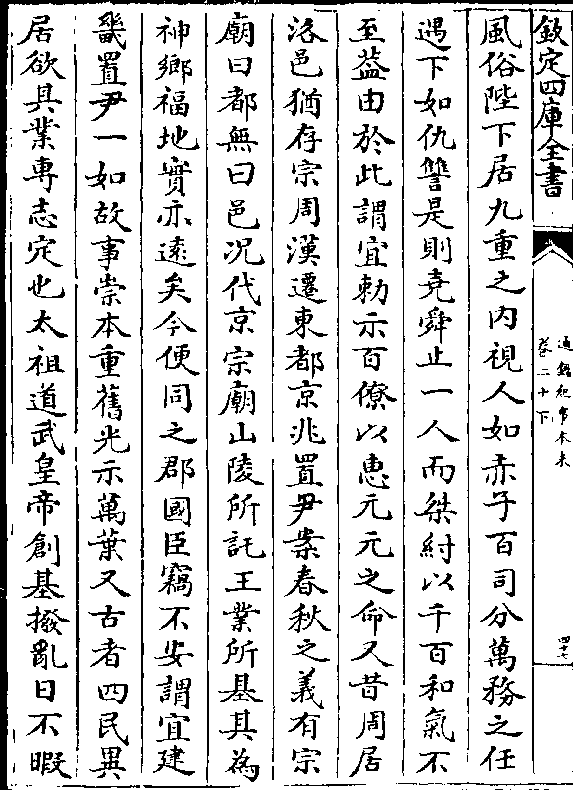 欽定四庫全書
通鑑紀事本末
卷二十下
四十七
風俗陛下居九重之内視人如赤子百司分萬務之任
遇下如仇讐是則堯舜止一人而桀紂以千百和氣不
至葢由於此謂宜勅示百僚以惠元元之命又昔周居
洛邑猶存宗周漢遷東都京兆置尹案春秋之義有宗
廟曰都無曰邑況代京宗廟山陵所託王業所基其為
神鄉福地實亦遠矣今便同之郡國臣竊不安謂宜建
畿置尹一如故事崇本重舊光示萬葉又古者四民異
居欲其業専志定也太祖道武皇帝創基撥亂日不暇